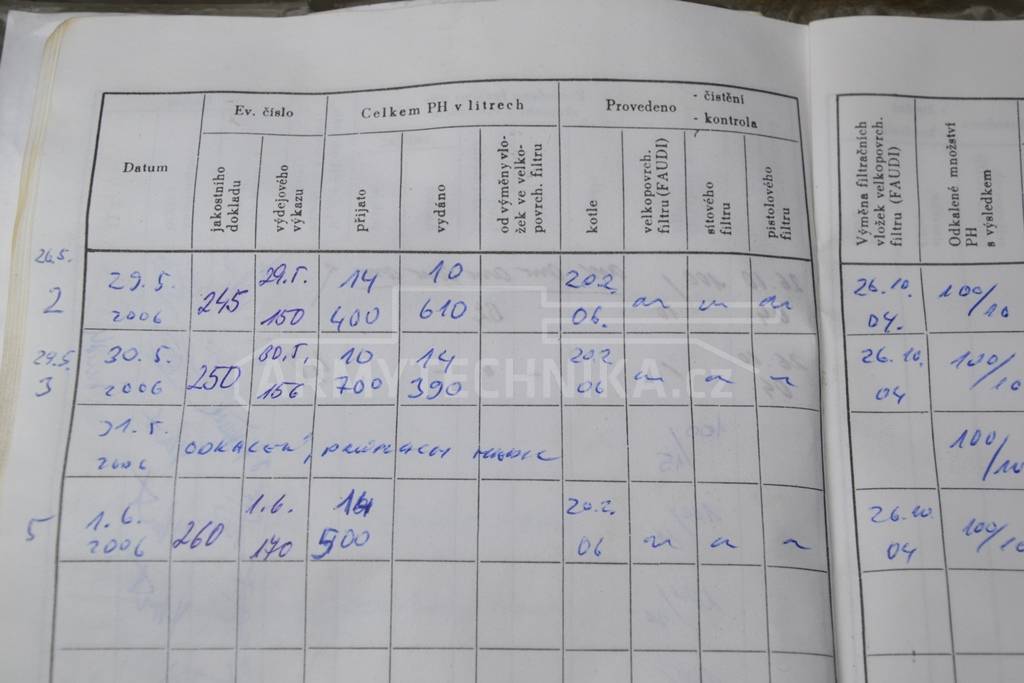 Datum
Ev. číslo
jakostního dokladu
výdejového výkazu
Celkem PH v litrech
přijato
vydáno
od výměny vlo-
žek ve velko-
povrch. filtru
Provedeno - čistění
- kontrola
kotle
velkopovrch.
filtru (FAUDI)
sítového
filtru
pistolového
filtru
Výměna filtračních
vložek velkopovrch.
filtru (FAUDI)
Odkalené množství
PH
s výsledkem
26.5.
2
29.5. 29.5. 14 10 20.2. 26.10. 100/10
2006 245 150 400 610 06. 04.
29.5.
3
30.5. 30.5. 10 14 20.2 26.10. 100/10
2006 250 156 700 390 06 04
31.5.
2006 100/10
5
1.6. 1.6. 14 20.2. 26.10. 100/10
2006 260 170 500 06 04
ARMYTECHNIKA.cz